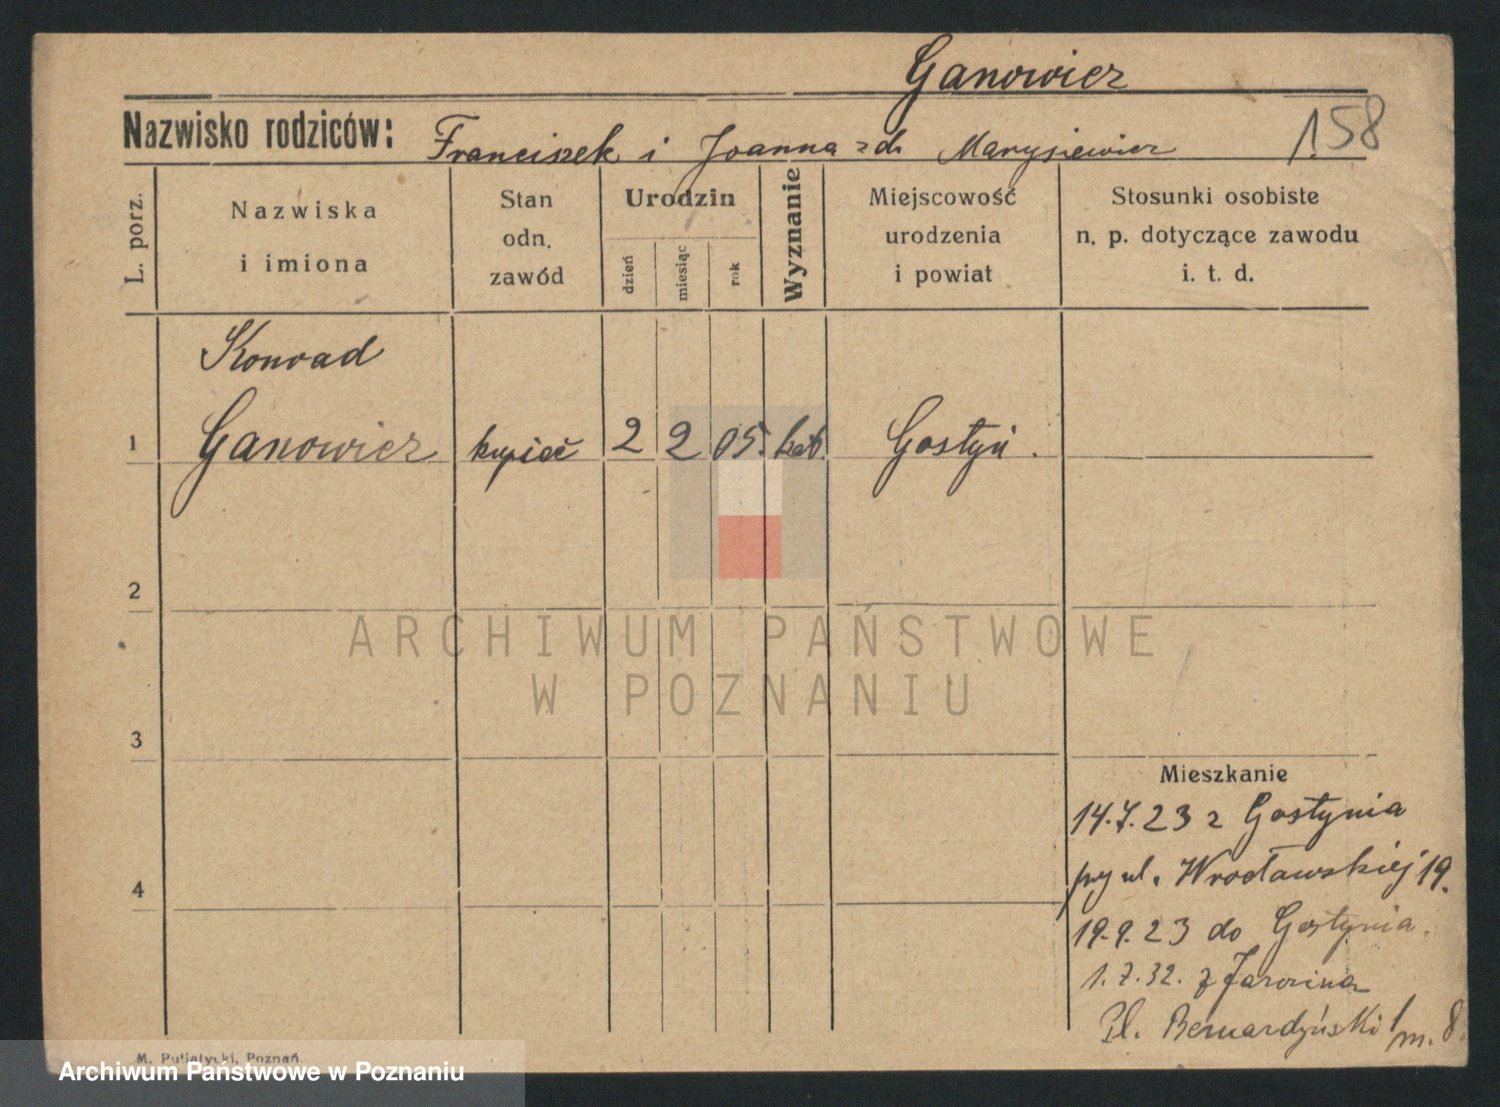 Ganowicz
Nazwisko rodziców: Franciszek i Joanna zd. Marysiewicz 158
L. porz.
Nazwiska
i imiona
Stan
odn.
zawód
Urodzin
dzień
miesiąc
rok
Wyznanie
Miejscowość
urodzenia
i powiat
Stosunki osobiste
n. p. dotyczące zawodu
i. t. d.
Konrad
1 Ganowicz kupiec 2 2 05. kat. Gostyń.
2
ARCHIWUM PAŃSTWOWE
W POZNANIU
3
Mieszkanie
14.7.23 z Gostynia
przy ul. Wrocławskiej 19.
4
19.9.23 do Gostynia.
1.7.32. z Jarocina
Pl. Bernardyński 1 m. 8.
M. Putiatycki, Poznań
Archiwum Państwowe w Poznaniu